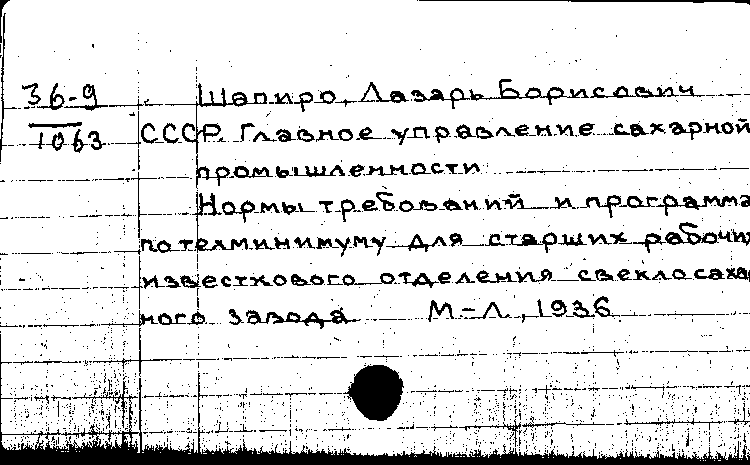 36-9 Шапиро, Лазарь Борисович
1063 СССР. Главное управление сахарной
промышленности
Нормы требований и программа
по техминимуму для старших рабочих
известкового отделения свеклосахар
ного завода М-Л., 1936